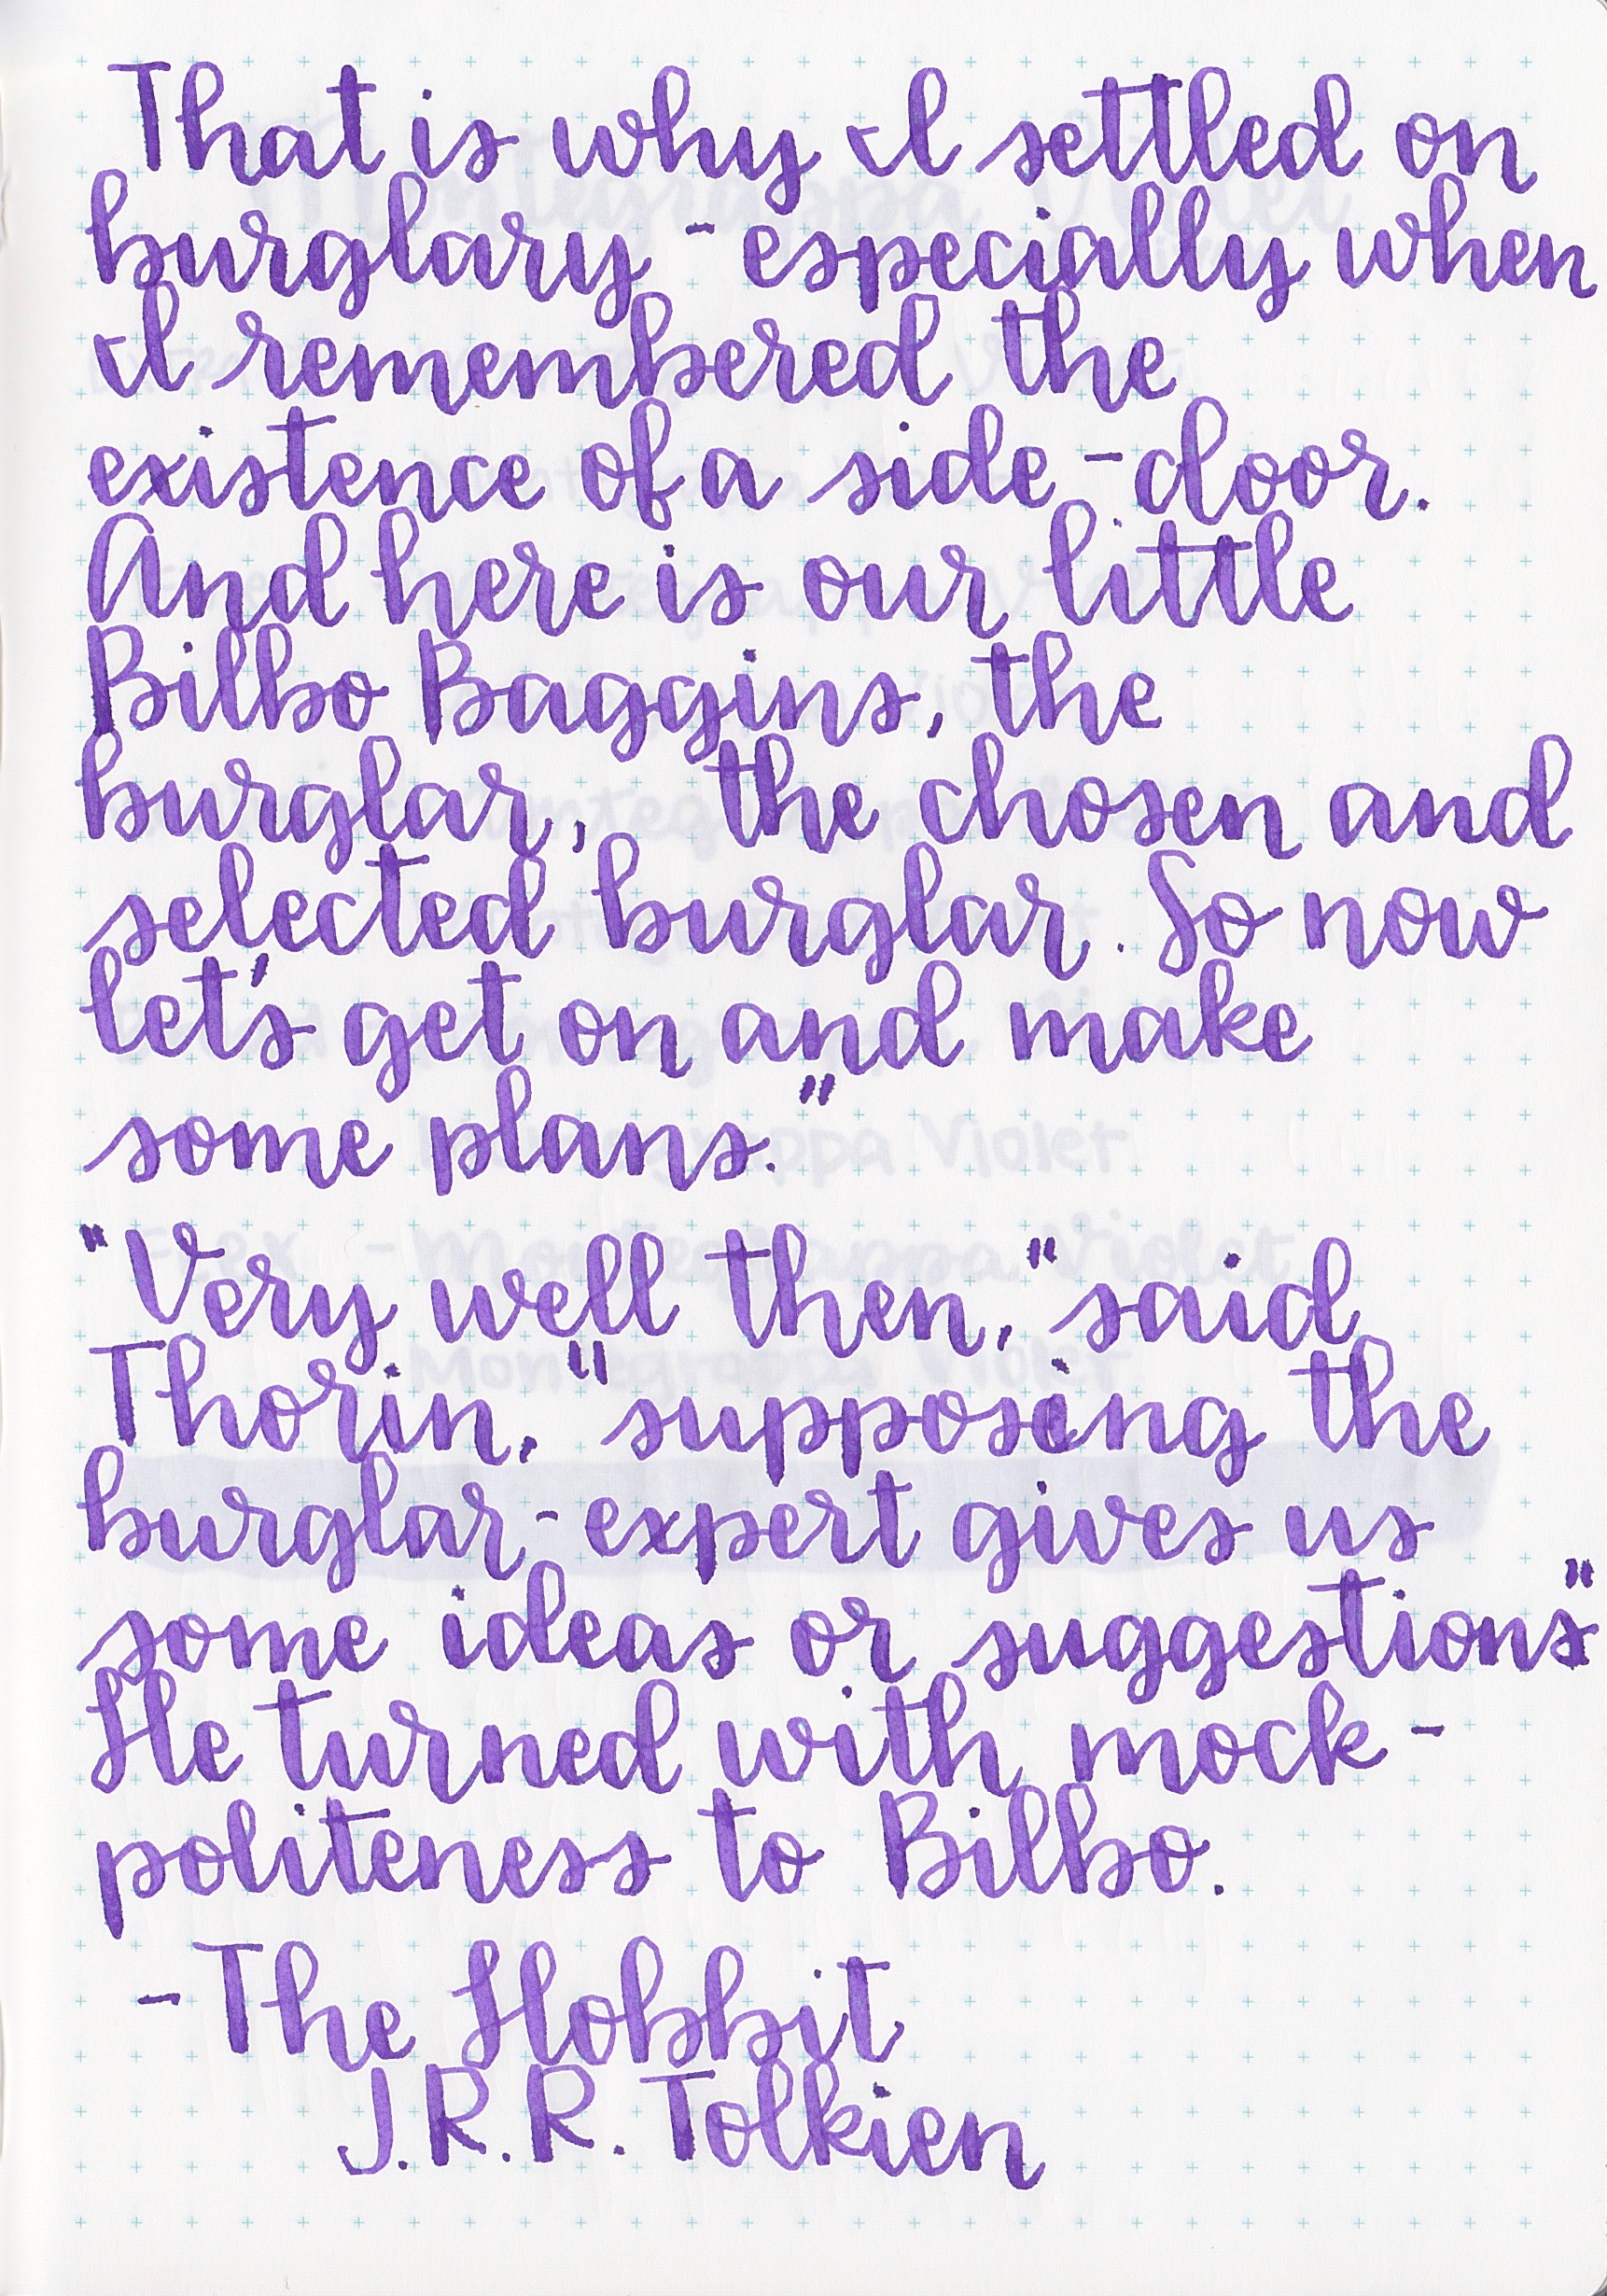 That is why I settled on
burglary - especially when
I remembered the
existence of a side-door.
And here is our little
Bilbo Baggins, the
burglar, the chosen and
selected burglar. So now
let's get on and make
some plans."
"Very well then," said
Thorin, "supposing the
burglar-expert gives us
some ideas or suggestions"
He turned with mock-
politeness to Bilbo.
- The Hobbit
J.R.R. Tolkien